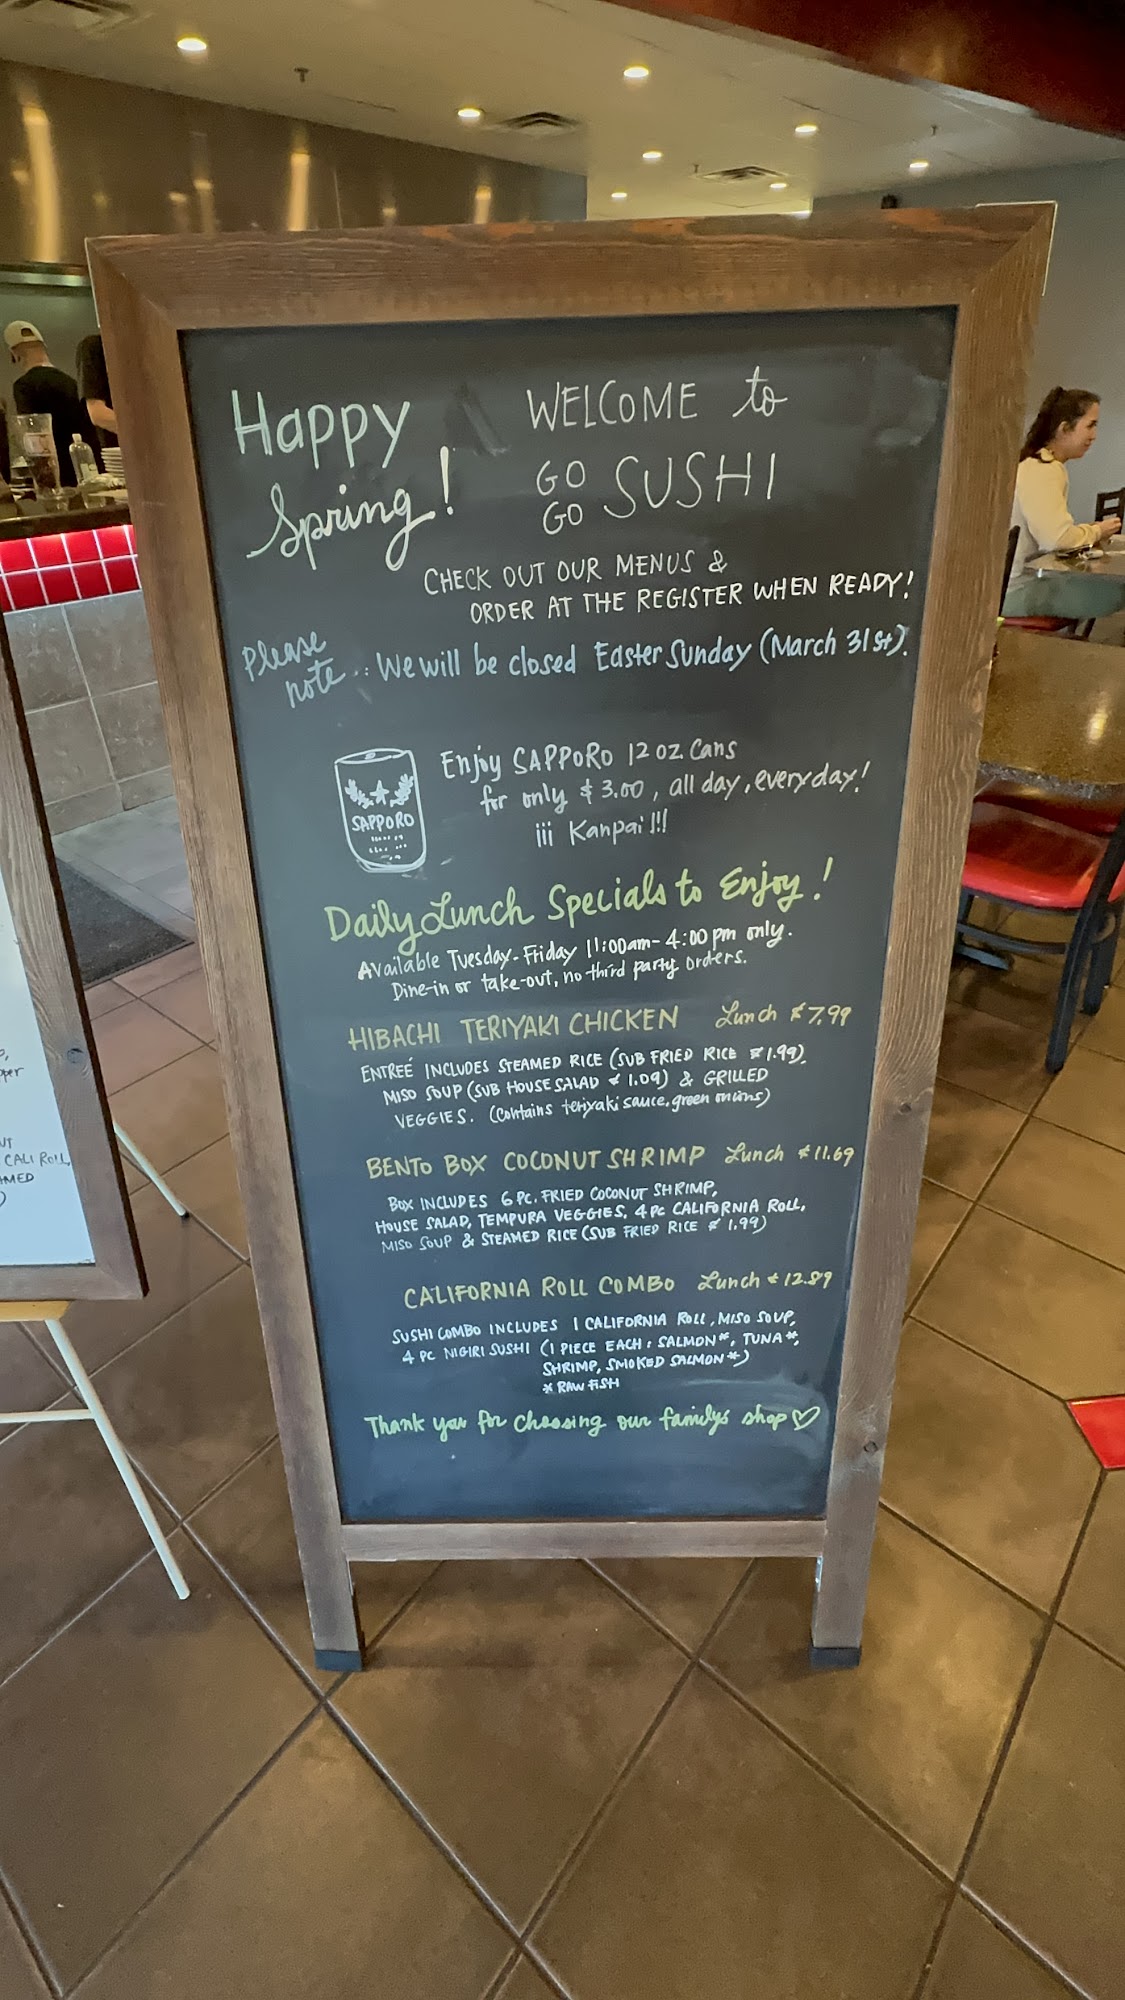 Happy
Spring!
WELCOME to
GO GO SUSHI
CHECK OUT OUR MENUS &
ORDER AT THE REGISTER WHEN READY!
Please
note..: We will be closed Easter Sunday (March 31st).
SAPPORO
Enjoy SAPPORO 12 oz Cans
for only $3.00, all day, everyday!
¡¡¡ Kanpai !!!
Daily Lunch Specials to Enjoy!
Available Tuesday-Friday 11:00am-4:00pm only.
Dine-in or take-out, no third party orders.
HIBACHI TERIYAKI CHICKEN Lunch $7.99
ENTREÉ INCLUDES STEAMED RICE (SUB FRIED RICE $1.99),
MISO SOUP (SUB HOUSE SALAD $1.09) & GRILLED
VEGGIES. (Contains teriyaki sauce, green onions)
BENTO BOX COCONUT SHRIMP Lunch $11.69
BOX INCLUDES 6 PC. FRIED COCONUT SHRIMP,
HOUSE SALAD, TEMPURA VEGGIES, 4 PC CALIFORNIA ROLL,
MISO SOUP & STEAMED RICE (SUB FRIED RICE $1.99)
CALIFORNIA ROLL COMBO Lunch $12.89
SUSHI COMBO INCLUDES 1 CALIFORNIA ROLL, MISO SOUP,
4 PC NIGIRI SUSHI (1 PIECE EACH: SALMON*, TUNA*,
SHRIMP, SMOKED SALMON*)
* RAW FISH
Thank you for choosing our familys shop ♡
CALI ROLL,